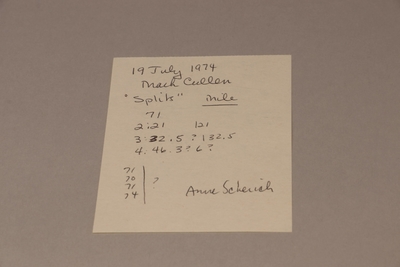 19 July 1974
Mark Cullen
"Splits" mile
71
2:21 121
3:32.5 ? 132.5
4.46.3? 6?
71
70
71 ?
74
Anne Scherich